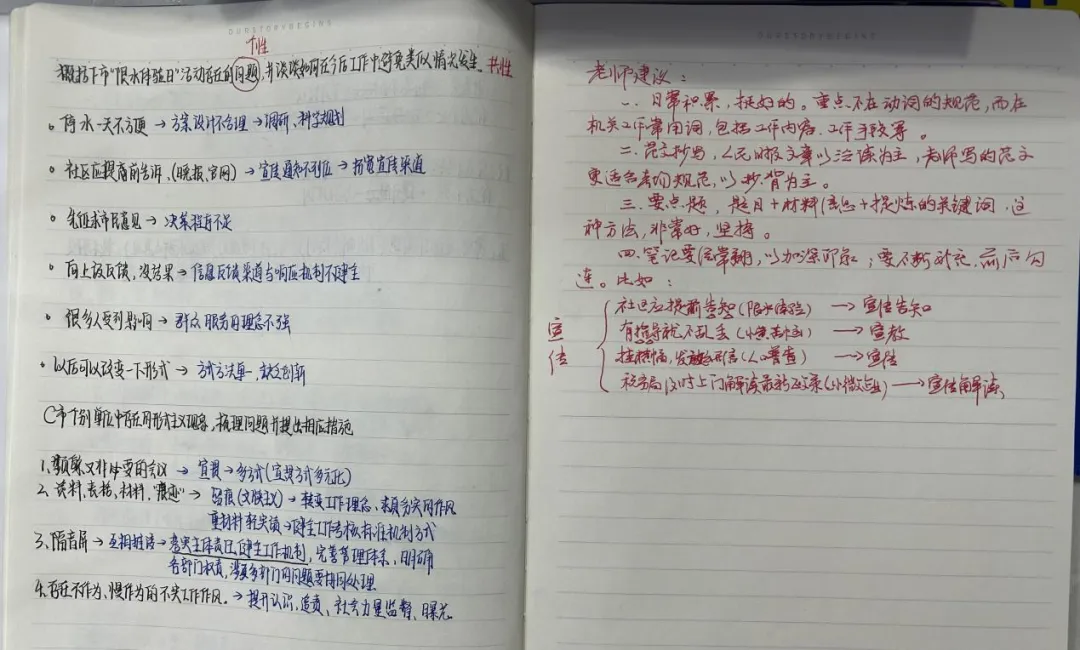 个性
概括F市“限水体验日”活动存在的问题,并谈谈如何在今后工作中避免类似情况发生。共性
停水一天不方便 → 方案设计不合理 → 调研、科学规划
社区应提前告诉、(晚报、官网) → 宣传通知不到位 → 拓宽宣传渠道
先征求市民意见 → 决策程序不足
向上级反馈,没结果 → 信息反馈渠道与响应机制不健全
很多人受到影响 → 群众服务的理念不强
以后可以改变一下形式 → 方式方法单一,缺乏创新
C市个别单位中存在的形式主义现象,梳理问题并提出相应措施
1、频繁又非必要的会议 → 宣贯 → 多方式(宣贯方式多元化)
2、资料、表格、材料、“痕迹” → 留痕(文牍主义) → 转变工作理念、求真务实的作风
重材料轻实绩 → 健全工作考核标准机制方式
3、隔音屏 → 互相推诿 → 落实主体责任,健全工作机制,完善管理体系、明确
各部门权责,涉及多部门的问题要协同处理
4、存在不作为、慢作为的不实工作作风。→ 提升认识、追责、社会力量监督、曝光。
老师建议:
一、日常积累,挺好的。重点不在动词的规范,而在
机关工作常用词,包括工作内容、工作手段等。
二、范文抄写,人民日报文章以泛读为主,老师写的范文
更适合考场规范,以抄背为主。
三、要点题,题目+材料信息+提炼的关键词,这
种方法,非常好,坚持。
四、笔记要经常翻,以加深印象;要不断补充,前后勾
连。比如:
宣传
社区应提前告知(限水体验) → 宣传告知
有指导就不乱丢 → 宣教
挂横幅,发放(人口普查) → 宣传
税务局及时上门解读最新政策 → 宣传解读